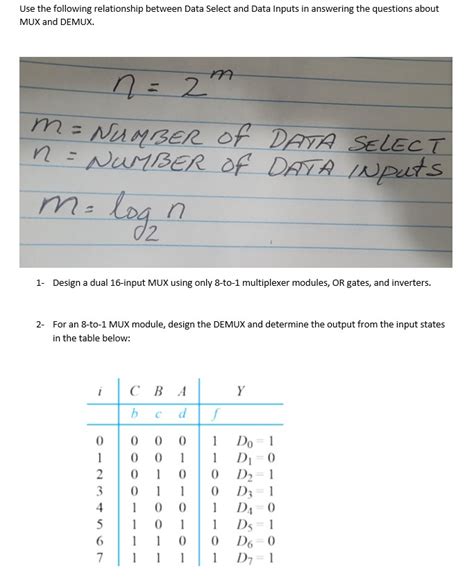 Use the following relationship between Data Select and Data Inputs in answering the questions about
MUX and DEMUX.
n = 2^m
m = NUMBER of DATA SELECT
n = NUMBER OF DATA INPUTS
m = log₂ n
1- Design a dual 16-input MUX using only 8-to-1 multiplexer modules, OR gates, and inverters.
2- For an 8-to-1 MUX module, design the DEMUX and determine the output from the input states
in the table below:
i C B A Y
b c d f
0 0 0 0 1 D₀ = 1
1 0 0 1 1 D₁ = 0
2 0 1 0 0 D₂ = 1
3 0 1 1 0 D₃ = 1
4 1 0 0 1 D₄ = 0
5 1 0 1 1 D₅ = 1
6 1 1 0 0 D₆ = 0
7 1 1 1 1 D₇ = 1